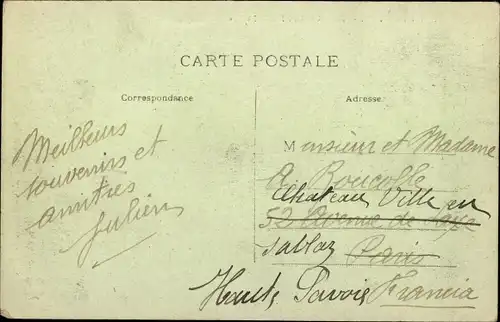 CARTE POSTALE
Correspondance
Adresse
Meilleurs
souvenirs et
amitiés
Julien
Monsieur et Madame
A. Boucolle
Chateau Ville en
52 Avenue de Saxe
Sallaz
Paris
Haute Savoie Francia